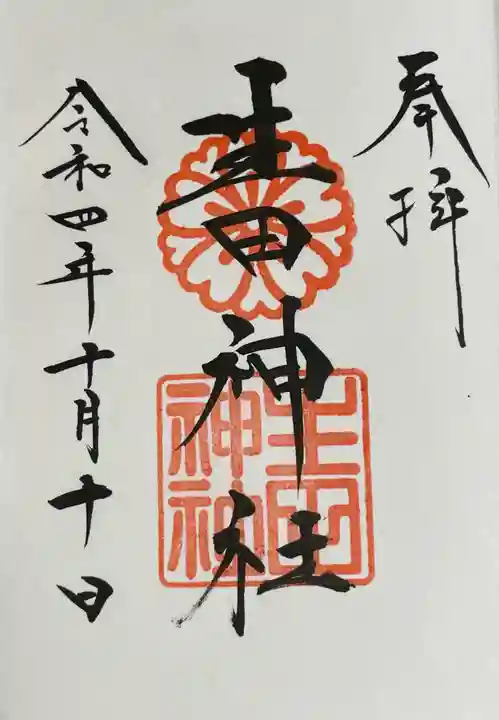 奉拝
生田神社
生田
神社
令和四年十月十日